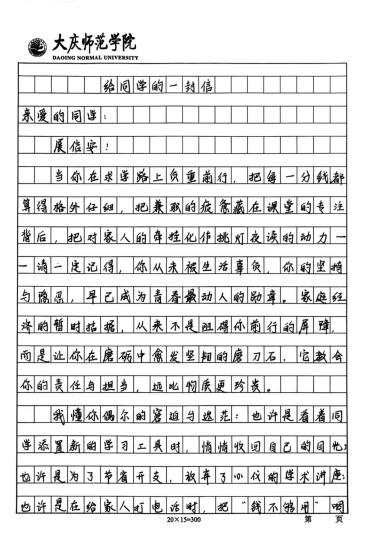 大庆师范学院
DAQING NORMAL UNIVERSITY
给同学的一封信
亲爱的同学：
展信安！
当你在求学路上负重前行，把每一分钱都
算得格外仔细，把兼职的疲惫藏在课堂的专注
背后，把对家人的牵挂化作挑灯夜读的动力—
—请一定记得，你从未被生活辜负，你的坚持
与隐忍，早已成为青春最动人的勋章。家庭经
济的暂时拮据，从来不是阻碍你前行的屏障，
而是让你在磨砺中愈发坚韧的磨刀石，它教会
你的责任与担当，远比物质更珍贵。
我懂你偶尔的窘迫与迷茫：也许是看着同
学添置新的学习工具时，悄悄收回自己的目光；
也许是为了节省开支，放弃了心仪的学术讲座；
也许是在给家人打电话时，把“我不够用”咽
20×15=300
第 页